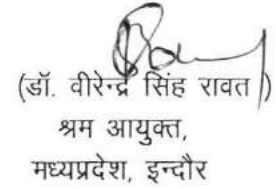 (डॉ. वीरेन्द्र सिंह रावत)
श्रम आयुक्त,
मध्यप्रदेश, इन्दौर